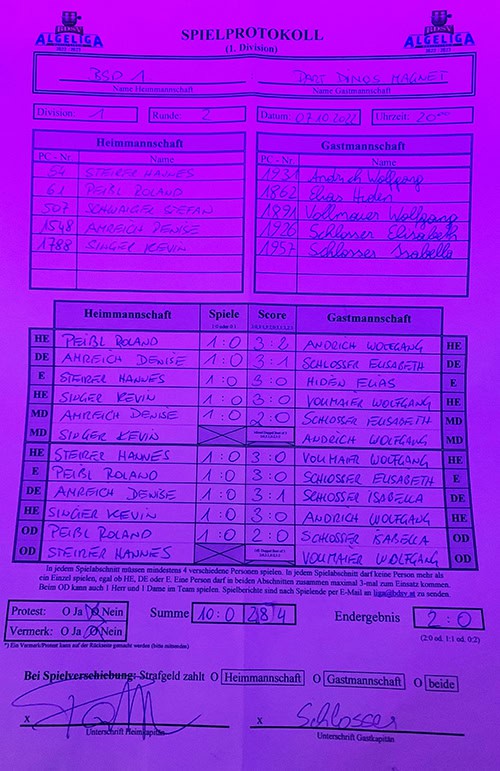 BDSV
ALGELIGA
2022 / 2023
SPIELPROTOKOLL
(1. Division)
BDSV
ALGELIGA
2022 / 2023
BSD 1 DART DINOS MAGNET
Name Heimmannschaft Name Gastmannschaft
Division: 1 Runde: 2 Datum: 07.10.2022 Uhrzeit: 20:00
Heimmannschaft Gastmannschaft
PC - Nr. Name PC - Nr. Name
54 STEIRER HANNES 1931 Andrich Wolfgang
61 PEIßL ROLAND 1862 Elias Hiden
507 SCHWAIGER STEFAN 1891 Vollmaier Wolfgang
1548 AMREICH DENISE 1926 Schlosser Elisabeth
1788 SINGER KEVIN 1957 Schlosser Isabella
Heimmannschaft Spiele Score Gastmannschaft
HE PEIßL ROLAND 1:0 3:2 ANDRICH WOLFGANG HE
DE AMREICH DENISE 1:0 3:1 SCHLOSSER ELISABETH DE
E STEIRER HANNES 1:0 3:0 HIDEN ELIAS E
HE SINGER KEVIN 1:0 3:0 VOLLMAIER WOLFGANG HE
MD AMREICH DENISE 1:0 2:0 SCHLOSSER ELISABETH MD
MD SINGER KEVIN ANDRICH WOLFGANG MD
HE STEIRER HANNES 1:0 3:0 VOLLMAIER WOLFGANG HE
E PEIßL ROLAND 1:0 3:0 SCHLOSSER ELISABETH E
DE AMREICH DENISE 1:0 3:1 SCHLOSSER ISABELLA DE
HE SINGER KEVIN 1:0 3:0 ANDRICH WOLFGANG HE
OD PEIßL ROLAND 1:0 2:0 SCHLOSSER ISABELLA OD
OD STEIRER HANNES VOLLMAIER WOLFGANG OD
In jedem Spielabschnitt müssen mindestens 4 verschiedene Personen spielen. In jedem Spielabschnitt darf keine Person mehr als
ein Einzel spielen, egal ob HE, DE oder E. Eine Person darf in beiden Abschnitten zusammen maximal 3-mal zum Einsatz kommen.
Beim OD kann auch 1 Herr und 1 Dame im Team spielen. Spielberichte sind nach Spielende per E-Mail an liga@bdsv.at zu senden.
Protest: O Ja O Nein Summe 10:0 28:4 Endergebnis 2:0
Vermerk: O Ja O Nein (2:0 od. 1:1 od. 0:2)
*) Ein Vermerk/Protest kann auf der Rückseite gemacht werden (bitte mitsenden)
Bei Spielverschiebung: Strafgeld zahlt O Heimmannschaft O Gastmannschaft O beide
x x Schlosser
Unterschrift Heimkapitän Unterschrift Gastkapitän